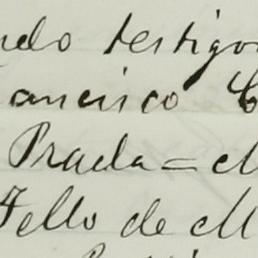 ndo testigo
ancisco
Prada = M
Tello de M